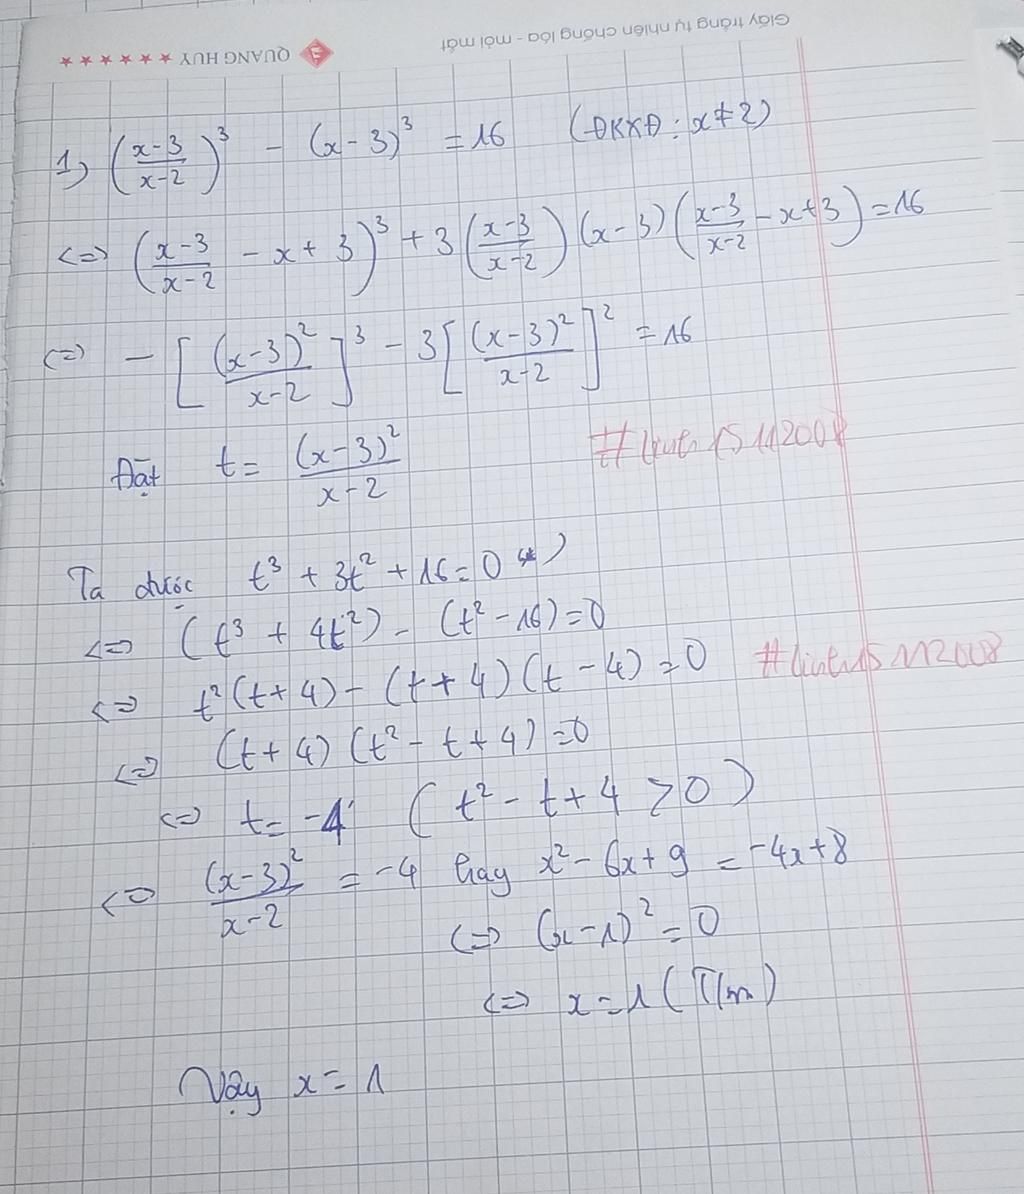 Giấy trắng tự nhiên chống lóa - mỏi mắt
QUANG HUY ★★★★★★★
1) ((x-3)/(x-2))³ - (x-3)³ = 16 (ĐKXĐ: x≠2)
<=> ((x-3)/(x-2) - x + 3)³ + 3((x-3)/(x-2))(x-3)((x-3)/(x-2) - x+3) = 16
<=> -[(x-3)²/(x-2)]³ - 3[(x-3)²/(x-2)]² = 16
Đặt t = (x-3)²/(x-2)
Ta được t³ + 3t² + 16 = 0 (*)
<=> (t³ + 4t²) - (t² - 16) = 0
<=> t²(t+4) - (t+4)(t-4) = 0
<=> (t+4)(t² - t + 4) = 0
<=> t = -4 (t² - t + 4 > 0)
<=> (x-3)²/(x-2) = -4 hay x² - 6x + 9 = -4x + 8
<=> (x-1)² = 0
<=> x = 1 (T/m)
Vậy x = 1